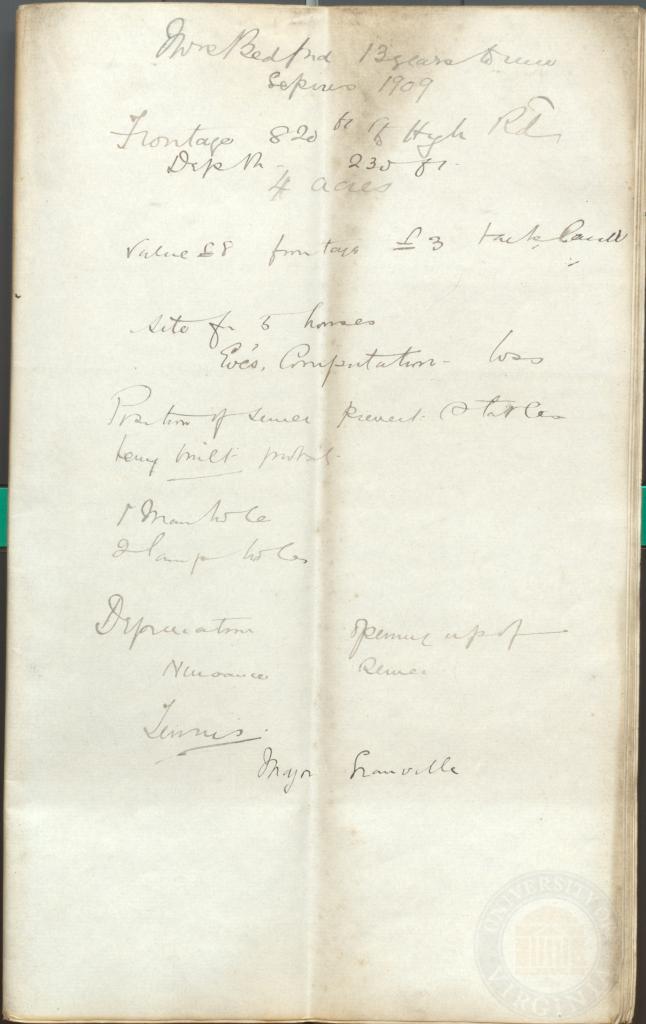 Mrs Bedford 13 years to run
Expires 1909
Frontage 820 ft to High Rd
Depth - 230 ft.
4 acres
Value £8 frontage £3 back land
site for 5 houses
Eve's. Computation - loss
Position of sewer prevent. Stables
being built
1 Man hole
2 lamp holes
Depreciation opening up of
Nuisance Sewer
Tennis.
Major Granville
UNIVERSITY OF VIRGINIA